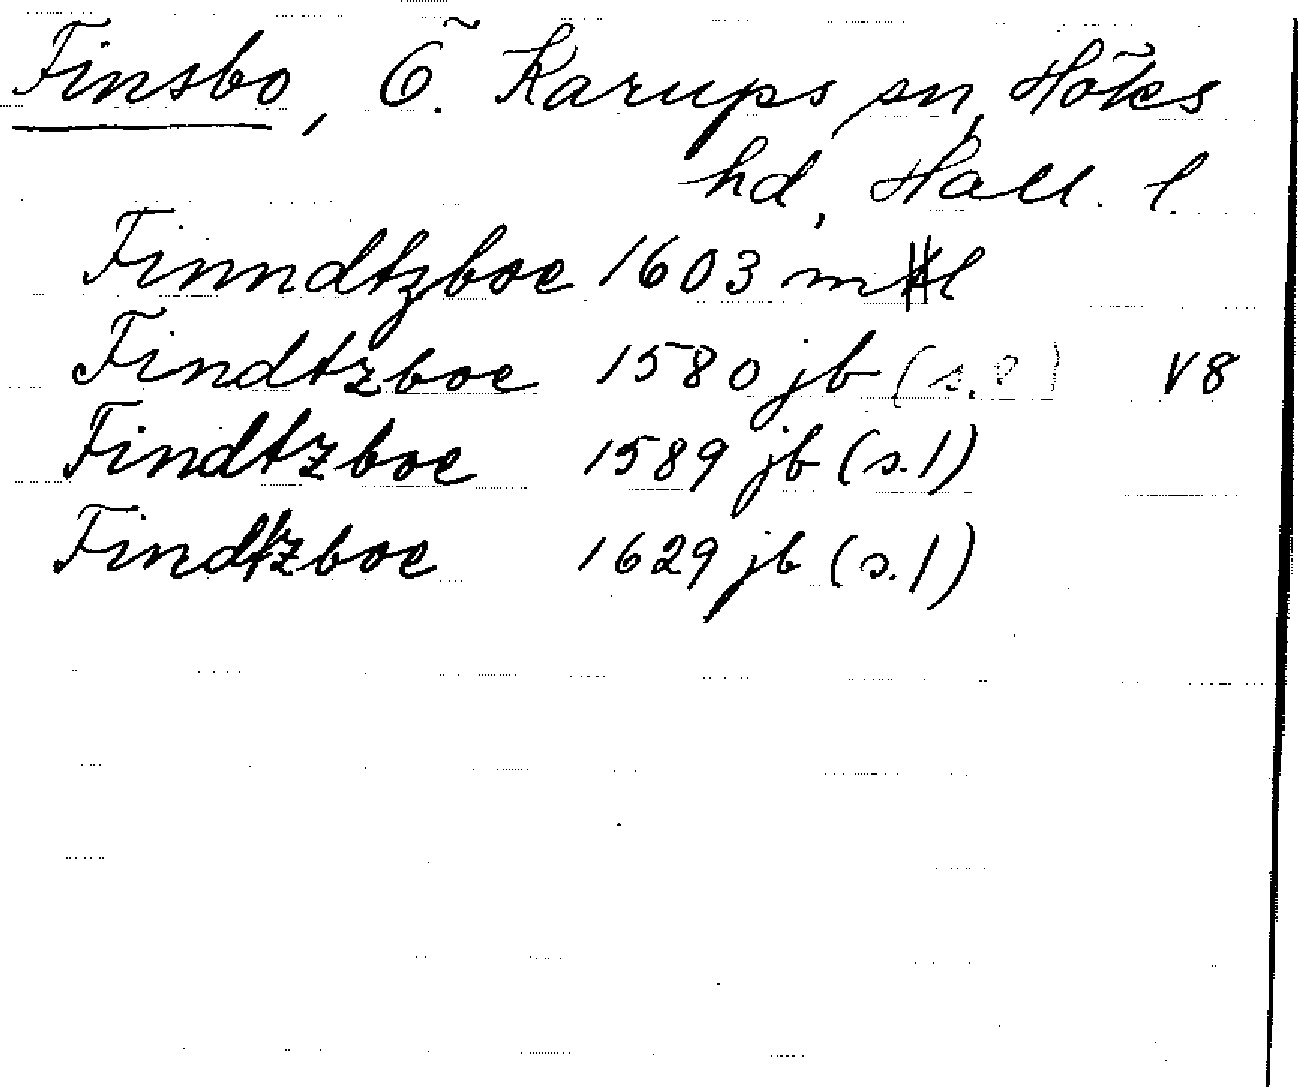 Finsbo, Ö. Karups sn, Höks
hd, Hall. l.
Finndtzboe 1603 mtl
Findtzboe 1580 jb (s.l) V8
Findtzboe 1589 jb (s.l)
Findtzboe 1629 jb (s.l)